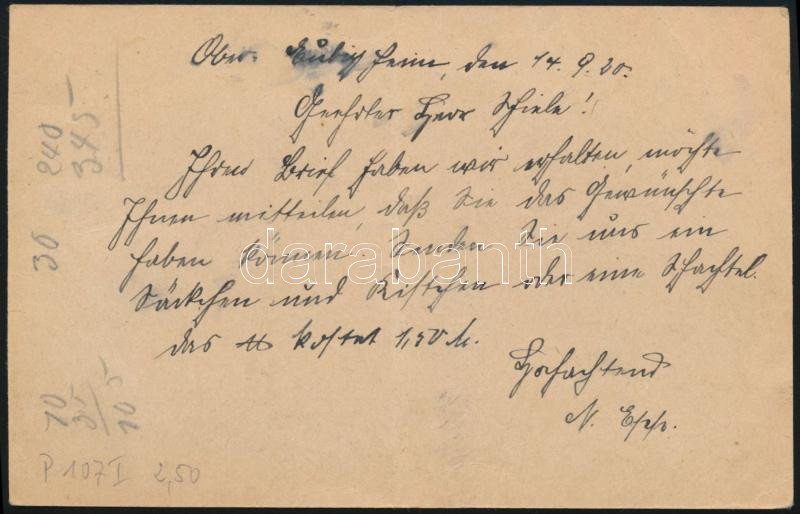 Ober- Eubigheim, den 14. 9. 20.
Geehrter Herr Schiele!
Ihren Brief haben wir erhalten, möchte
Ihnen mitteilen, daß Sie das Gewünschte
haben können. Senden Sie uns ein
Säckchen und Kistchen oder eine Schachtel.
das ℔ kostet 1,50 M.
Hochachtend
N.
240
345
30
70
35
105
P 107 I 2,50
darabanth